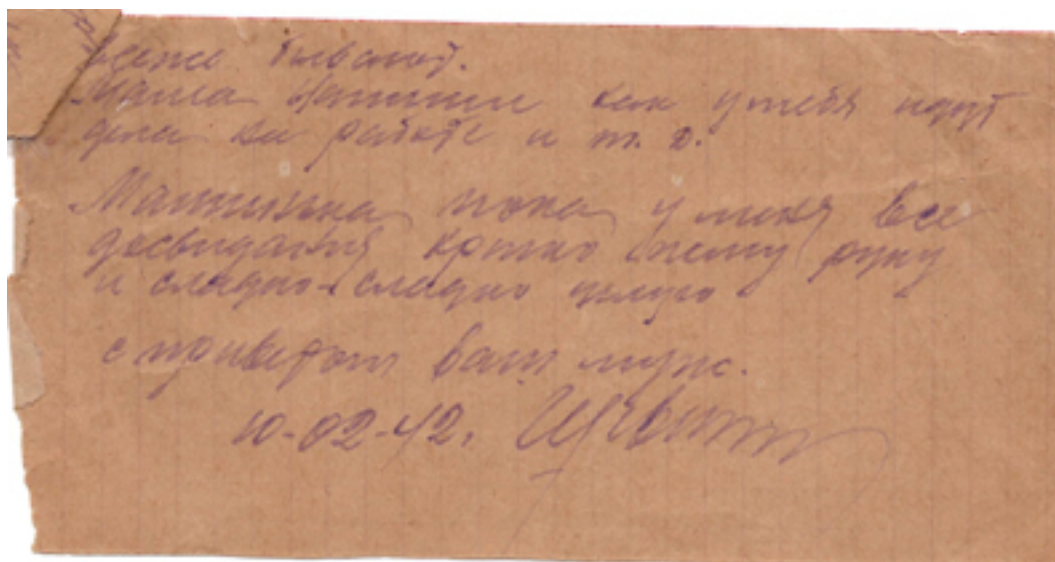 бывают.
Маша напиши как у тебя идут
дела на работе и т. д.
Машинька пока у меня все
досвидания крепко жму руку
и сладко-сладко целую
с приветом ваш муж.
10-02-42.